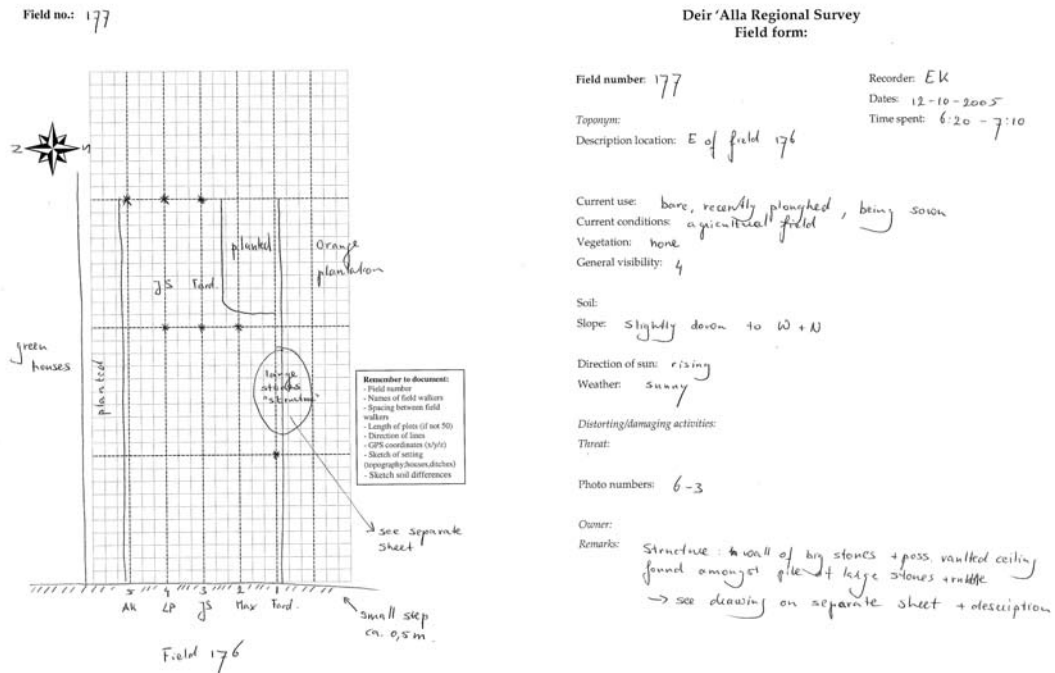 Field no.: 177
Z
N
planted
Orange
plantation
JS Fard.
green
houses
planted
large
stones
"structure"
Remember to document:
- Field number
- Names of field walkers
- Spacing between field
walkers
- Length of plots (if not 50)
- Direction of lines
- GPS coordinates (x/y/z)
- Sketch of setting
(topography,houses,ditches)
- Sketch soil differences
see separate
sheet
5 4 3 2 1
AK LP JS Max Fard.
small step
ca. 0,5 m.
Field 176
Deir 'Alla Regional Survey
Field form:
Field number: 177
Recorder: EK
Dates: 12-10-2005
Time spent: 6:20 - 7:10
Toponym:
Description location: E of field 176
Current use: bare, recently ploughed, being sown
Current conditions: agricultural field
Vegetation: none
General visibility: 4
Soil:
Slope: slightly down to W + N
Direction of sun: rising
Weather: sunny
Distorting/damaging activities:
Threat:
Photo numbers: 6-3
Owner:
Remarks: Structure: wall of big stones + poss. vaulted ceiling
found amongst pile of large stones + rubble
→ see drawing on separate sheet + description